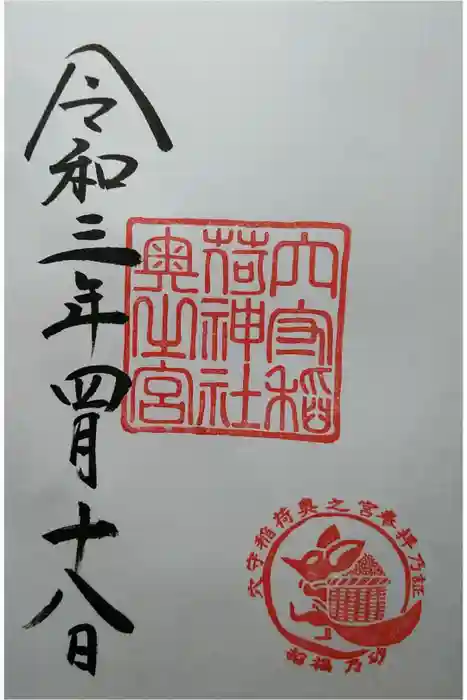 穴守稲
荷神社
奥之宮
令和三年四月十八日
穴守稲荷奥之宮奉拝乃証
招福乃砂